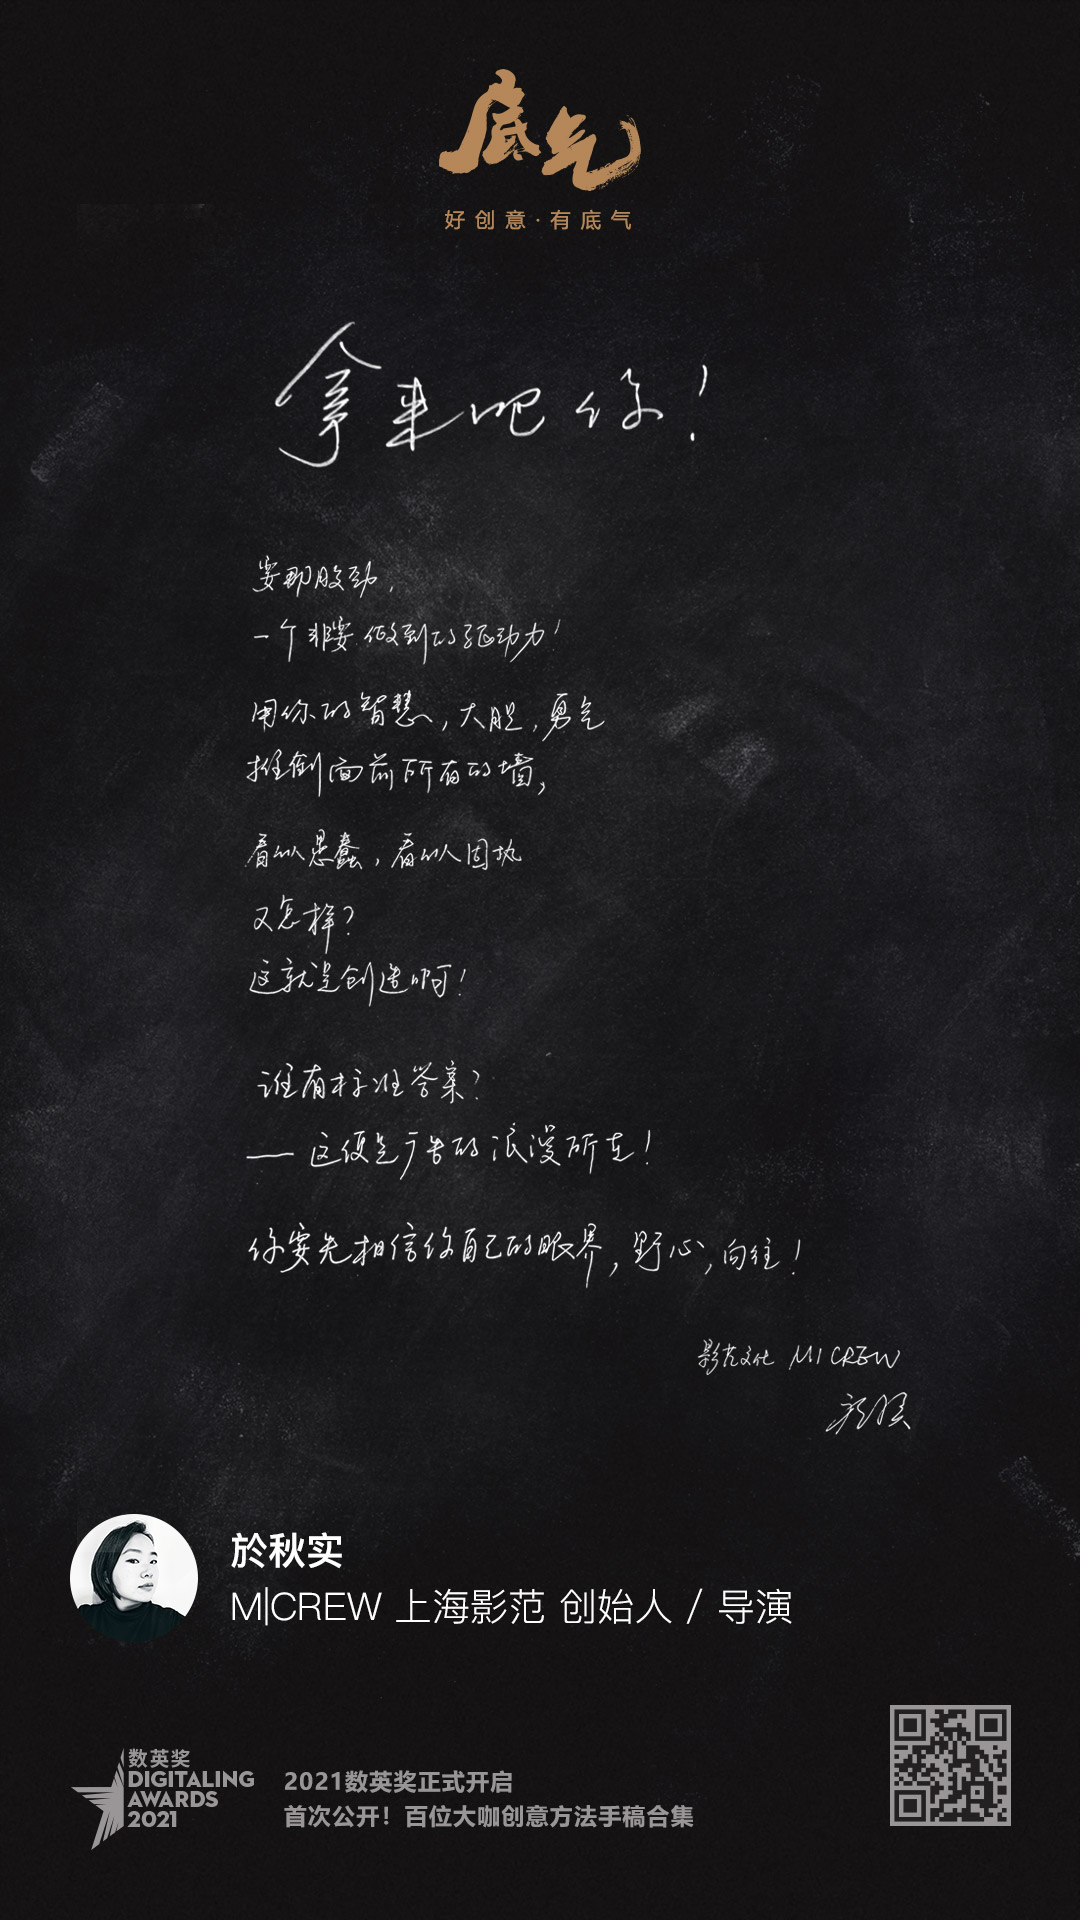 底气
好创意·有底气
拿来吧你!
要那股劲,
一个非要做到的驱动力!
用你的智慧,大胆,勇气
推倒面前所有的墙,
看似愚蠢,看似固执
又怎样?
这就是创造啊!
谁有标准答案?
——这便是广告的浪漫所在!
你要先相信你自己的眼界,野心,向往!
影范文化 M|CREW
於秋实
M|CREW 上海影范 创始人 / 导演
数英奖
DIGITALING
AWARDS
2021
2021数英奖正式开启
首次公开!百位大咖创意方法手稿合集